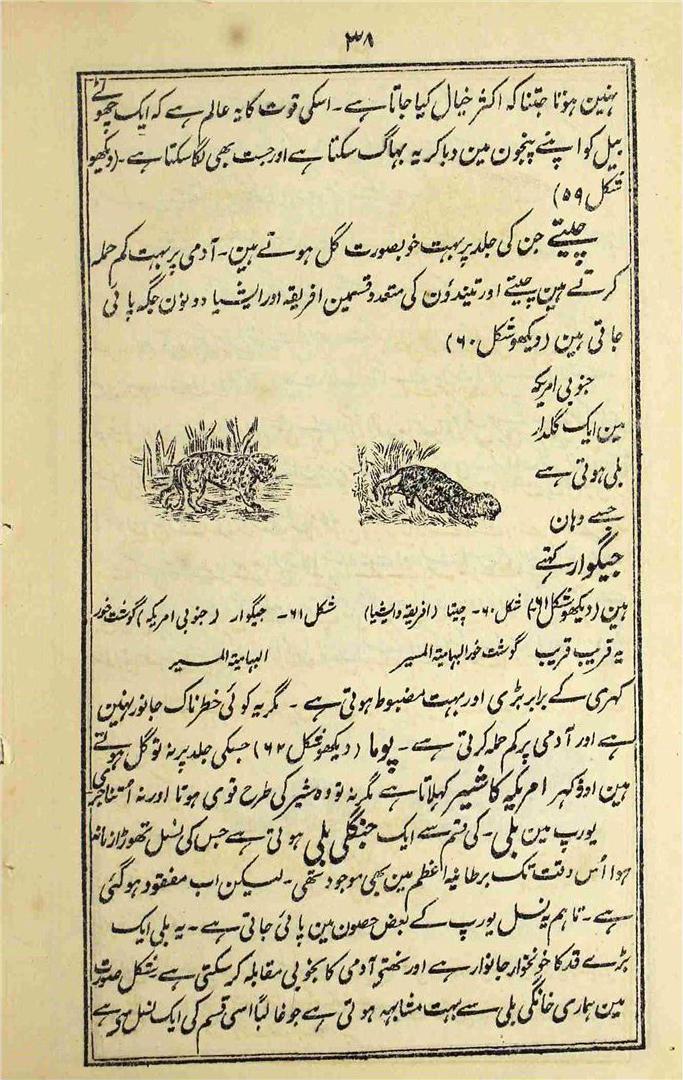 ۳۸
ہنین ہوتا جتنا کہ اکثر خیال کیا جاتا ہے۔ اسکی قوت کا یہ عالم ہے کہ ایک چھوٹے
بیل کو اپنے پنجون مین دبا کر یہ بہاگ سکتا ہے اور جست بھی لگا سکتا ہے۔ (دیکھو
شکل ۵۹)
چیتے جن کی جلد پر بہت خوبصورت گل ہوتے ہین۔ آدمی پر بہت کم حملہ
کرتے ہین چیتے اور تیندؤن کی متعدد قسمین افریقہ اور ایشیا دونون جگہ پائی
جاتی ہین (دیکھو شکل ۶۰)
جنوبی امریکہ
مین ایک گلدار
بلی ہوتی ہے
جسے وہان
جیگوار کہتے
ہین (دیکھو شکل ۶۱)
شکل ۶۰۔ چیتا (افریقہ و ایشیا)
گوشت خور البہامیۃ المسیر
شکل ۶۱۔ جیگوار (جنوبی امریکہ) گوشت خور
البہامیۃ المسیر
یہ قریب قریب
کہری کے برابر بڑی اور بہت مضبوط ہوتی ہے۔ مگر یہ کوئی خطرناک جانور ہنین
ہے اور آدمی پر کم حملہ کرتی ہے۔ پوما (دیکھو شکل ۶۲) جسکی جلد پر نہ تو گل ہوتے
ہین اور نہ امریکہ کا شیر کہلاتا ہے مگر نہ تو وہ شیر کی طرح قوی ہوتا اور نہ اُتنا
یورپ مین بلی۔ کی قسم سے ایک جنگلی بلی ہوتی ہے جس کی نسل تھوڑا زمانہ
ہوا اُس وقت تک برطانیہ اعظم مین بھی موجود تھی۔ لیکن اب مفقود ہو گئی
ہے۔ تاہم یہ نسل یورپ کے بعض حصون مین پائی جاتی ہے۔ یہ بلی ایک
بڑے قد کا خونخوار جانوار ہے اور نہتی آدمی کا بخوبی مقابلہ کر سکتی ہے شکل صورت
مین ہماری خانگی بلی سے بہت مشابہہ ہوتی ہے جو غالباً اسی قسم کی ایک نسل ہی ہے